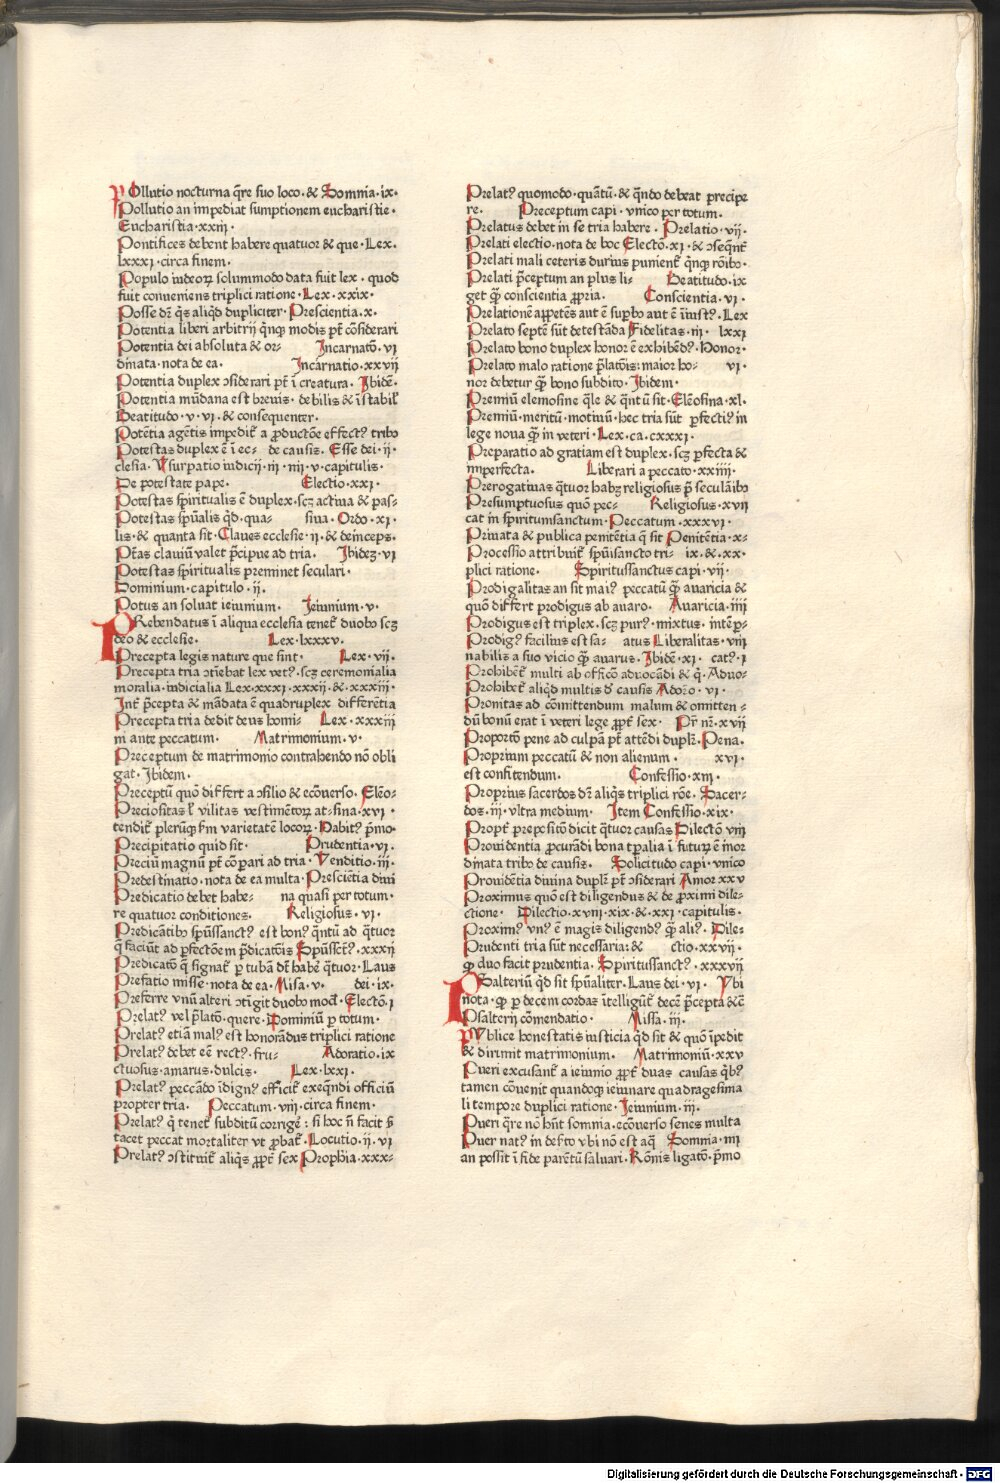 POllutio nocturna q̄re suo loco · & Somnia · ix ·
Pollutio an impediat sumptionem eucharistie ·
Eucharistia · xxiij ·
Pontifices debent habere quatuor & que · Lex ·
lxxxj · circa finem ·
Populo iudeoꝝ solummodo data fuit lex · quod
fuit conueniens triplici ratione · Lex · xxix ·
Posse dr̄ qs aliqd dupliciter · Prescientia · x ·
Potentia liberi arbitrij qnqꝫ modis pt̄ cōsiderari
Potentia dei absoluta & or- Incarnatō · vj
dinata · nota de ea · Incarnatio · xxvij
Potentia duplex ↄsiderari pt̄ ī creatura · Ibidē ·
Potentia mūdana est breuis · debilis & īstabil̄
Beatitudo · v · vj · & consequenter ·
Potētia agētis impedit̄ a ꝓductōe effectꝰ tribꝰ
Potestas duplex ē ī ec- de causis · Esse dei · ij ·
clesia · Vsurpatio iudicij · iij · iiij · v · capitulis ·
De potestate pape · Electio · xxj ·
Potestas spiritualis ē duplex · scꝫ actiua & pas-
Potestas spūalis qd · qua- siua · Ordo · xj ·
lis · & quanta sit · Claues ecclesie · ij · & deinceps ·
Ptās clauiū valet p̄cipue ad tria · Ibideꝫ · vj
Potestas spiritualis preminet seculari ·
Dominium · capitulo · ij ·
Potus an soluat ieiunium · Ieiunium · v ·
PRebendatus ī aliqua ecclesia tenet̄ duobꝰ scꝫ
deo & ecclesie · Lex · lxxxv ·
Precepta legis nature que sint · Lex · vij ·
Precepta tria ↄtiebat lex vetꝰ · scꝫ ceremonialia
moralia · iudicialia Lex · xxxj · xxxij · & · xxxiij ·
Int̄ p̄cepta & mādata ē quadruplex differētia
Precepta tria dedit deus homi- Lex · xxxiij
ni ante peccatum · Matrimonium · v ·
Preceptum de matrimonio contrahendo nō obli
gat · Ibidem ·
Preceptū quō differt a ↄsilio & ecōuerso · Elēo-
Preciositas l̄ vilitas vestimētoꝝ at- sina · xvj ·
tendit̄ plerūqꝫ s̄m varietatē locoꝝ · Habitꝰ p̄mo ·
Precipitatio quid sit · Prudentia · vj ·
Preciū magnū pt̄ cōpari ad tria · Venditio · iij ·
Predestinatio · nota de ea multa · Presciētia diui
Predicatio debet habe- na quasi per totum ·
re quatuor conditiones · Religiosus · vj ·
Predicātibꝰ spūssanctꝰ est bonꝰ qntū ad qtuor
q̄ faciūt ad ꝑfectōem p̄dicatōis Spūssctꝰ · xxxij
Predicatō q̄ signat̄ ꝑ tubā dt̄ habē qtuor · Laus
Prefatio misse · nota de ea · Misa · v · dei · ix ·
Preferre vnū alteri ↄtigit duobꝰ moď · Electō · j
Prelatꝰ vel p̄latō · quere · Dominiū ꝑ totum ·
Prelatꝰ etiā malꝰ est honorādus triplici ratione
Prelatꝰ debet eē rectꝰ · fru- Adoratio · ix
ctuosus · amarus · dulcis · Lex · lxxj ·
Prelatꝰ peccādo īdignꝰ efficit̄ exeqndi officiū
propter tria · Peccatum · viij · circa finem ·
Prelatꝰ q̄ tenet̄ subditū corrigē : si hoc n̄ facit s̄
tacet peccat mortaliter vt ꝓbat̄ · Locutio · ij · vj
Prelatꝰ ↄstituit̄ aliqs ꝓpt̄ sex Prophīa · xxx-
Prelatꝰ quomodo · quātū · & qn̄do debeat precipe
re · Preceptum capi · vnico per totum ·
Prelatus debet in se tria habere · Prelatio · vij ·
Prelati electio · nota de hoc Electō · xj · & ↄseqnt̄
Prelati mali ceteris durius punient̄ qnqꝫ rōibꝰ ·
Prelati p̄ceptum an plus li- Beatitudo · ix
get qꝫ̄ conscientia ꝓpria · Conscientia · vj ·
Prelationē appetēs aut ē supbꝰ aut ē īiustꝰ · Lex
Prelato septē sūt detestāda Fidelitas · iij · lxxj
Prelato bono duplex honor ē exhibēdꝰ · Honor ·
Prelato malo ratione p̄latōis : maior ho- vj ·
nor debetur qꝫ̄ bono subdito · Ibidem ·
Premiū elemosine qle & qntū sit · Elēosina · xl ·
Premiū · meritū · motiuū · hec tria sūt ꝑfectiꝰ in
lege noua qꝫ̄ in veteri · Lex · ca · cxxxj ·
Preparatio ad gratiam est duplex · scꝫ ꝑfecta &
imperfecta · Liberari a peccato · xxiiij ·
Prerogatiuas qtuor habꝫ religiosus p̄ seculāibꝰ
Presumptuosus quō pec- Religiosus · xvij
cat in spiritumsanctum · Peccatum · xxxvj ·
Priuata & publica penitētia q̄ sit Penitētia · x-
Processio attribuit̄ spūisancto tri- ix · & · xx ·
plici ratione · Spiritussanctus capi · vij ·
Prodigalitas an sit maiꝰ peccatū qꝫ̄ auaricia &
quō differt prodigus ab auaro · Auaricia · iiij
Prodigus est triplex · scꝫ purꝰ · mixtus · intēp-
Prodigꝰ facilius est sa- atus Liberalitas · viij
nabilis a suo vicio qꝫ̄ auarus · Ibidē · xj · catꝰ · j
Prohibēt̄ multi ab officō aduocādi & q̄ · Aduo-
Prohibet̄ aliqd multis d̄ causis Adorō · vj ·
Pronitas ad cōmittendum malum & omitten-
dū bonū erat ī veteri lege ꝓpt̄ sex · Pr̄ nr̄ · xvij
Proportō pene ad culpā pt̄ attēdi duplr̄ · Pena ·
Proprium peccatū & non alienum · xvj ·
est confitendum · Confessio · xiij ·
Proprius sacerdos dr̄ aliqs triplici rōe · Sacer-
dos · iij · vltra medium · Item Confessio · xix ·
Propt̄ prepositō dicit qtuor causas Dilectō viij
Prouidentia ꝓcurādi bona tꝑalia ī futuꝝ ē inor
dinata tribꝰ de causis · Solicitudo capi · vnico
Prouidētia diuina duplr̄ pt̄ ↄsiderari Amor xxv
Proximus quō est diligendus & de ꝓximi dile-
ctione · Dilectio · xviij · xix · & · xxj · capitulis ·
Proximꝰ vnꝰ ē magis diligendꝰ qꝫ̄ aliꝰ · Dile-
Prudenti tria sūt necessaria : & ctio · xxvij ·
ꝙ duo facit prudentia · Spiritussanctꝰ · xxxvij
PSalteriū qd sit spūaliter · Laus dei · vj · Vbi
nota · ꝙ ꝑ decem cordas ītelligūt̄ decē p̄cepta &c̄
Psalterij cōmendatio · Missa · iij ·
PVblice honestatis iusticia qd sit & quō īpedit
& dirimit matrimonium · Matrimoniū · xxv
Pueri excusant̄ a ieiunio ꝓpt̄ duas causas qbꝰ
tamen cōuenit quandoqꝫ ieiunare quadragesima
li tempore duplici ratione · Ieiunium · iij ·
Pueri q̄re nō hn̄t somnia · ecōuerso senes multa
Puer natꝰ in deſto vbi nō est aq̄ Somnia · iij
an possit ī fide parētū saluari · Rōnis ligatō · p̄mo
Digitalisierung gefördert durch die Deutsche Forschungsgemeinschaft - DFG